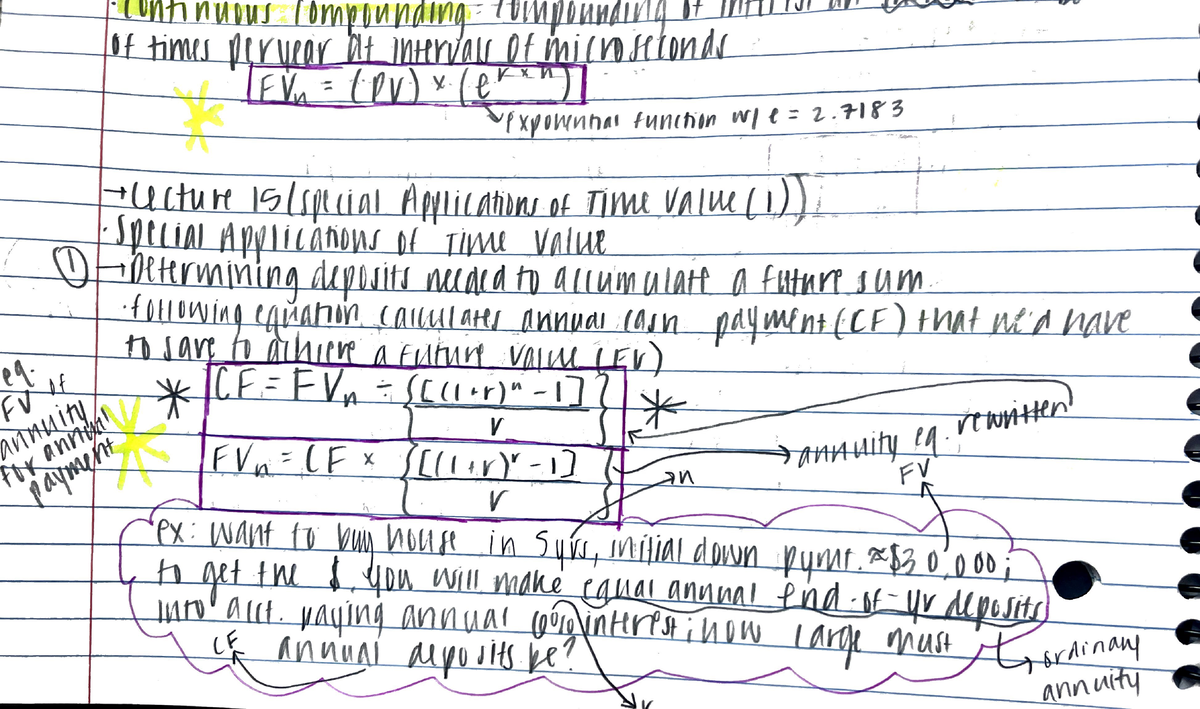 ·Continuous Compounding = compounding of interest an
of times per year at intervals of microseconds
FVn = (PV) × (e^r×n)
exponential function w/ e = 2.7183
→Lecture 15 (Special Applications of Time Value (1))
·Special Applications of Time Value
① →Determining deposits needed to accumulate a future sum
·following equation calculates annual cash payment (CF) that we'd have
to save to achieve a future value (FV)
eq. of
FV
annuity
for annual
payment
* CF = FVn ÷ {[(1+r)^n -1] / r} *
FVn = CF × {[(1+r)^r -1] / r}
→ annuity eq. rewritten
n
FV
ex: want to buy house in 5yrs, initial down pymt. ≈$30,000;
to get the $, you will make equal annual end-of-yr deposits
into acct. paying annual 6% interest; how large must
annual deposits be?
CF
ordinary
annuity
r